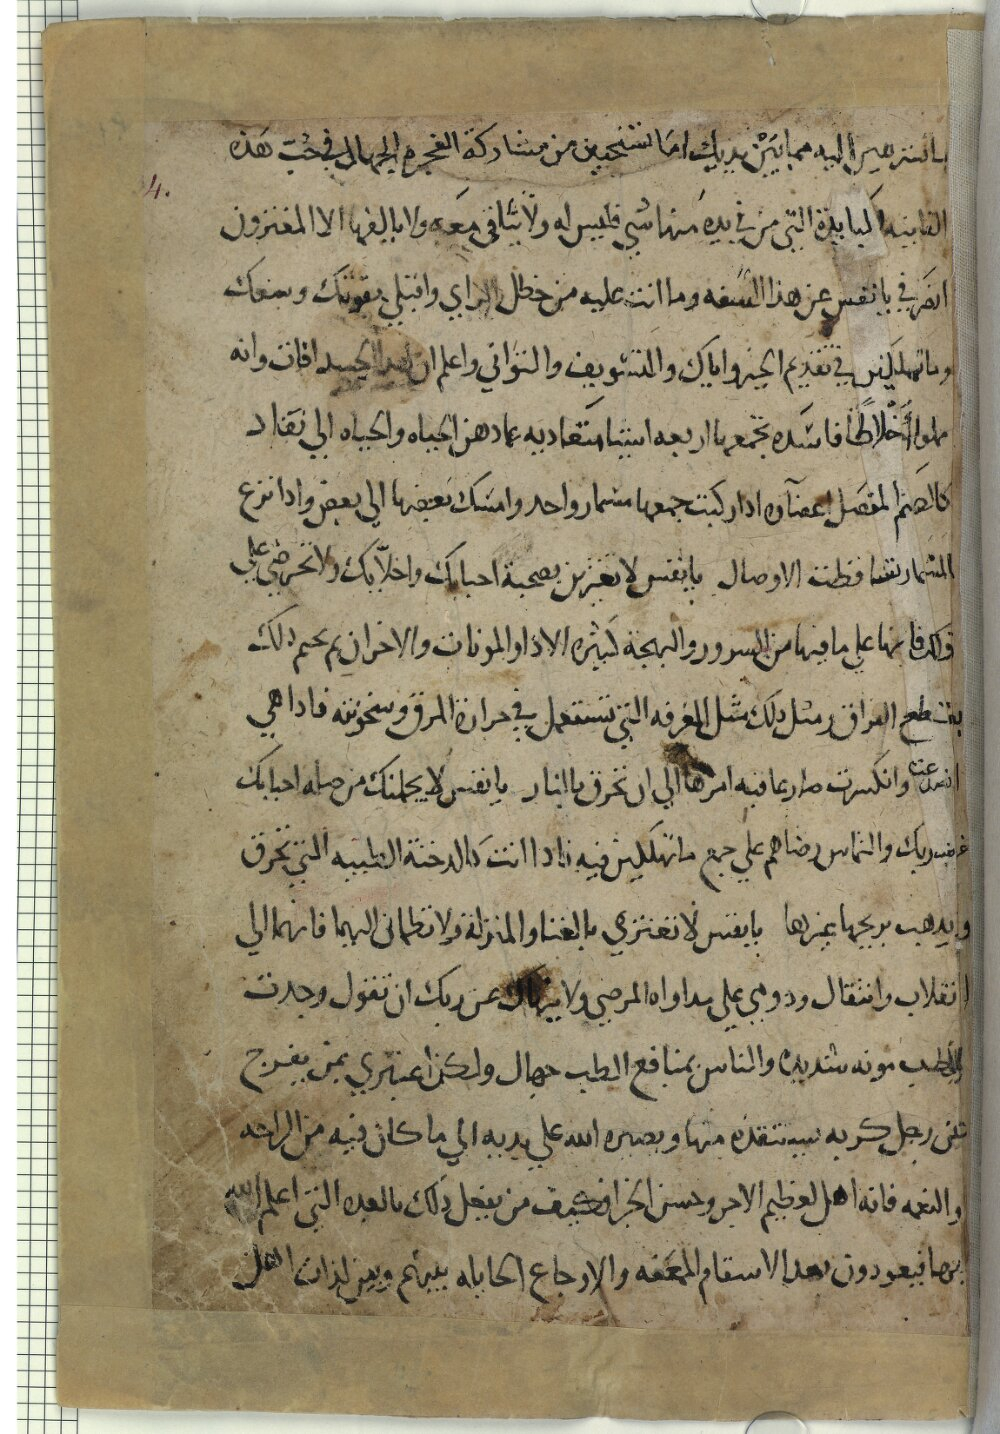 ما تصيرين اليه مما بين يديك اما تستحيين من مشاركة الفجرة الجهال في حب هذه
الفانيه البايدة التي من في يده منها شي فليس له ولا يبقا في معه ولا يالفها الا المغترون
انصرفي يا نفس عن هذا السفه وما انت عليه من خطل الراي واقبلي بقوتك وسعيك
وما تملكين في تقديم الخير واياك والتسويف والتواني واعلم ان هذا الجسد افات وانه
مملوا أَخْلاطًا فاسده تجمعها اربعه اشيا متعاديه عمادهن الحياه والحياه الي نفاد
كالصنم المفصل اعضاوه اذا ركبت جمعها مسمار واحد وامسك بعضها الي بعض واذا نزع
المسمار تساقطت الاوصال يا نفس لا تغترين بصحبة احبابك واخلايك ولا تحرصي علي
ذلك فانها علي ما فيها من السرور والبهجة كثيره الاذا والمونات والاحزان ثم يختم ذلك
بقطع الفراق ومثل ذلك مثل المغرفه التي تستعمل في حرارة المرق وسخونته فاذا هي
انصدعت وانكسرت صار عاقبه امرها الي ان تحرق بالنار يا نفس لا يحملنك من صله احبابك
ربك والتماس رضاهم علي جمع ما تهلكين فيه فاذا انت كالدخنة الطيبه التي تحرق
ويذهب بريحها غيرها يا نفس لا تغتري بالغنا والمنزلة ولا تطماني اليهما فانهما الي
انقلاب وانتقال ودومي علي مداواه المرضي ولا عن ربك ان تقول وجدت
للطب مونه شديده والناس بمنافع الطب جهال ولكن اعتبري بمن يفرج
عن رجل كربه يستنقذه منها ويصيره الله علي يديه الي ما كان فيه من الراحه
والنعمه فانه اهل لعظيم الاجر وحسن الجزا فكيف من يفعل ذلك بالعده التي اعلم الله
بها فيعودون بعد الاسقام المعنفه والاوجاع الحايله بينهم وبين لذات